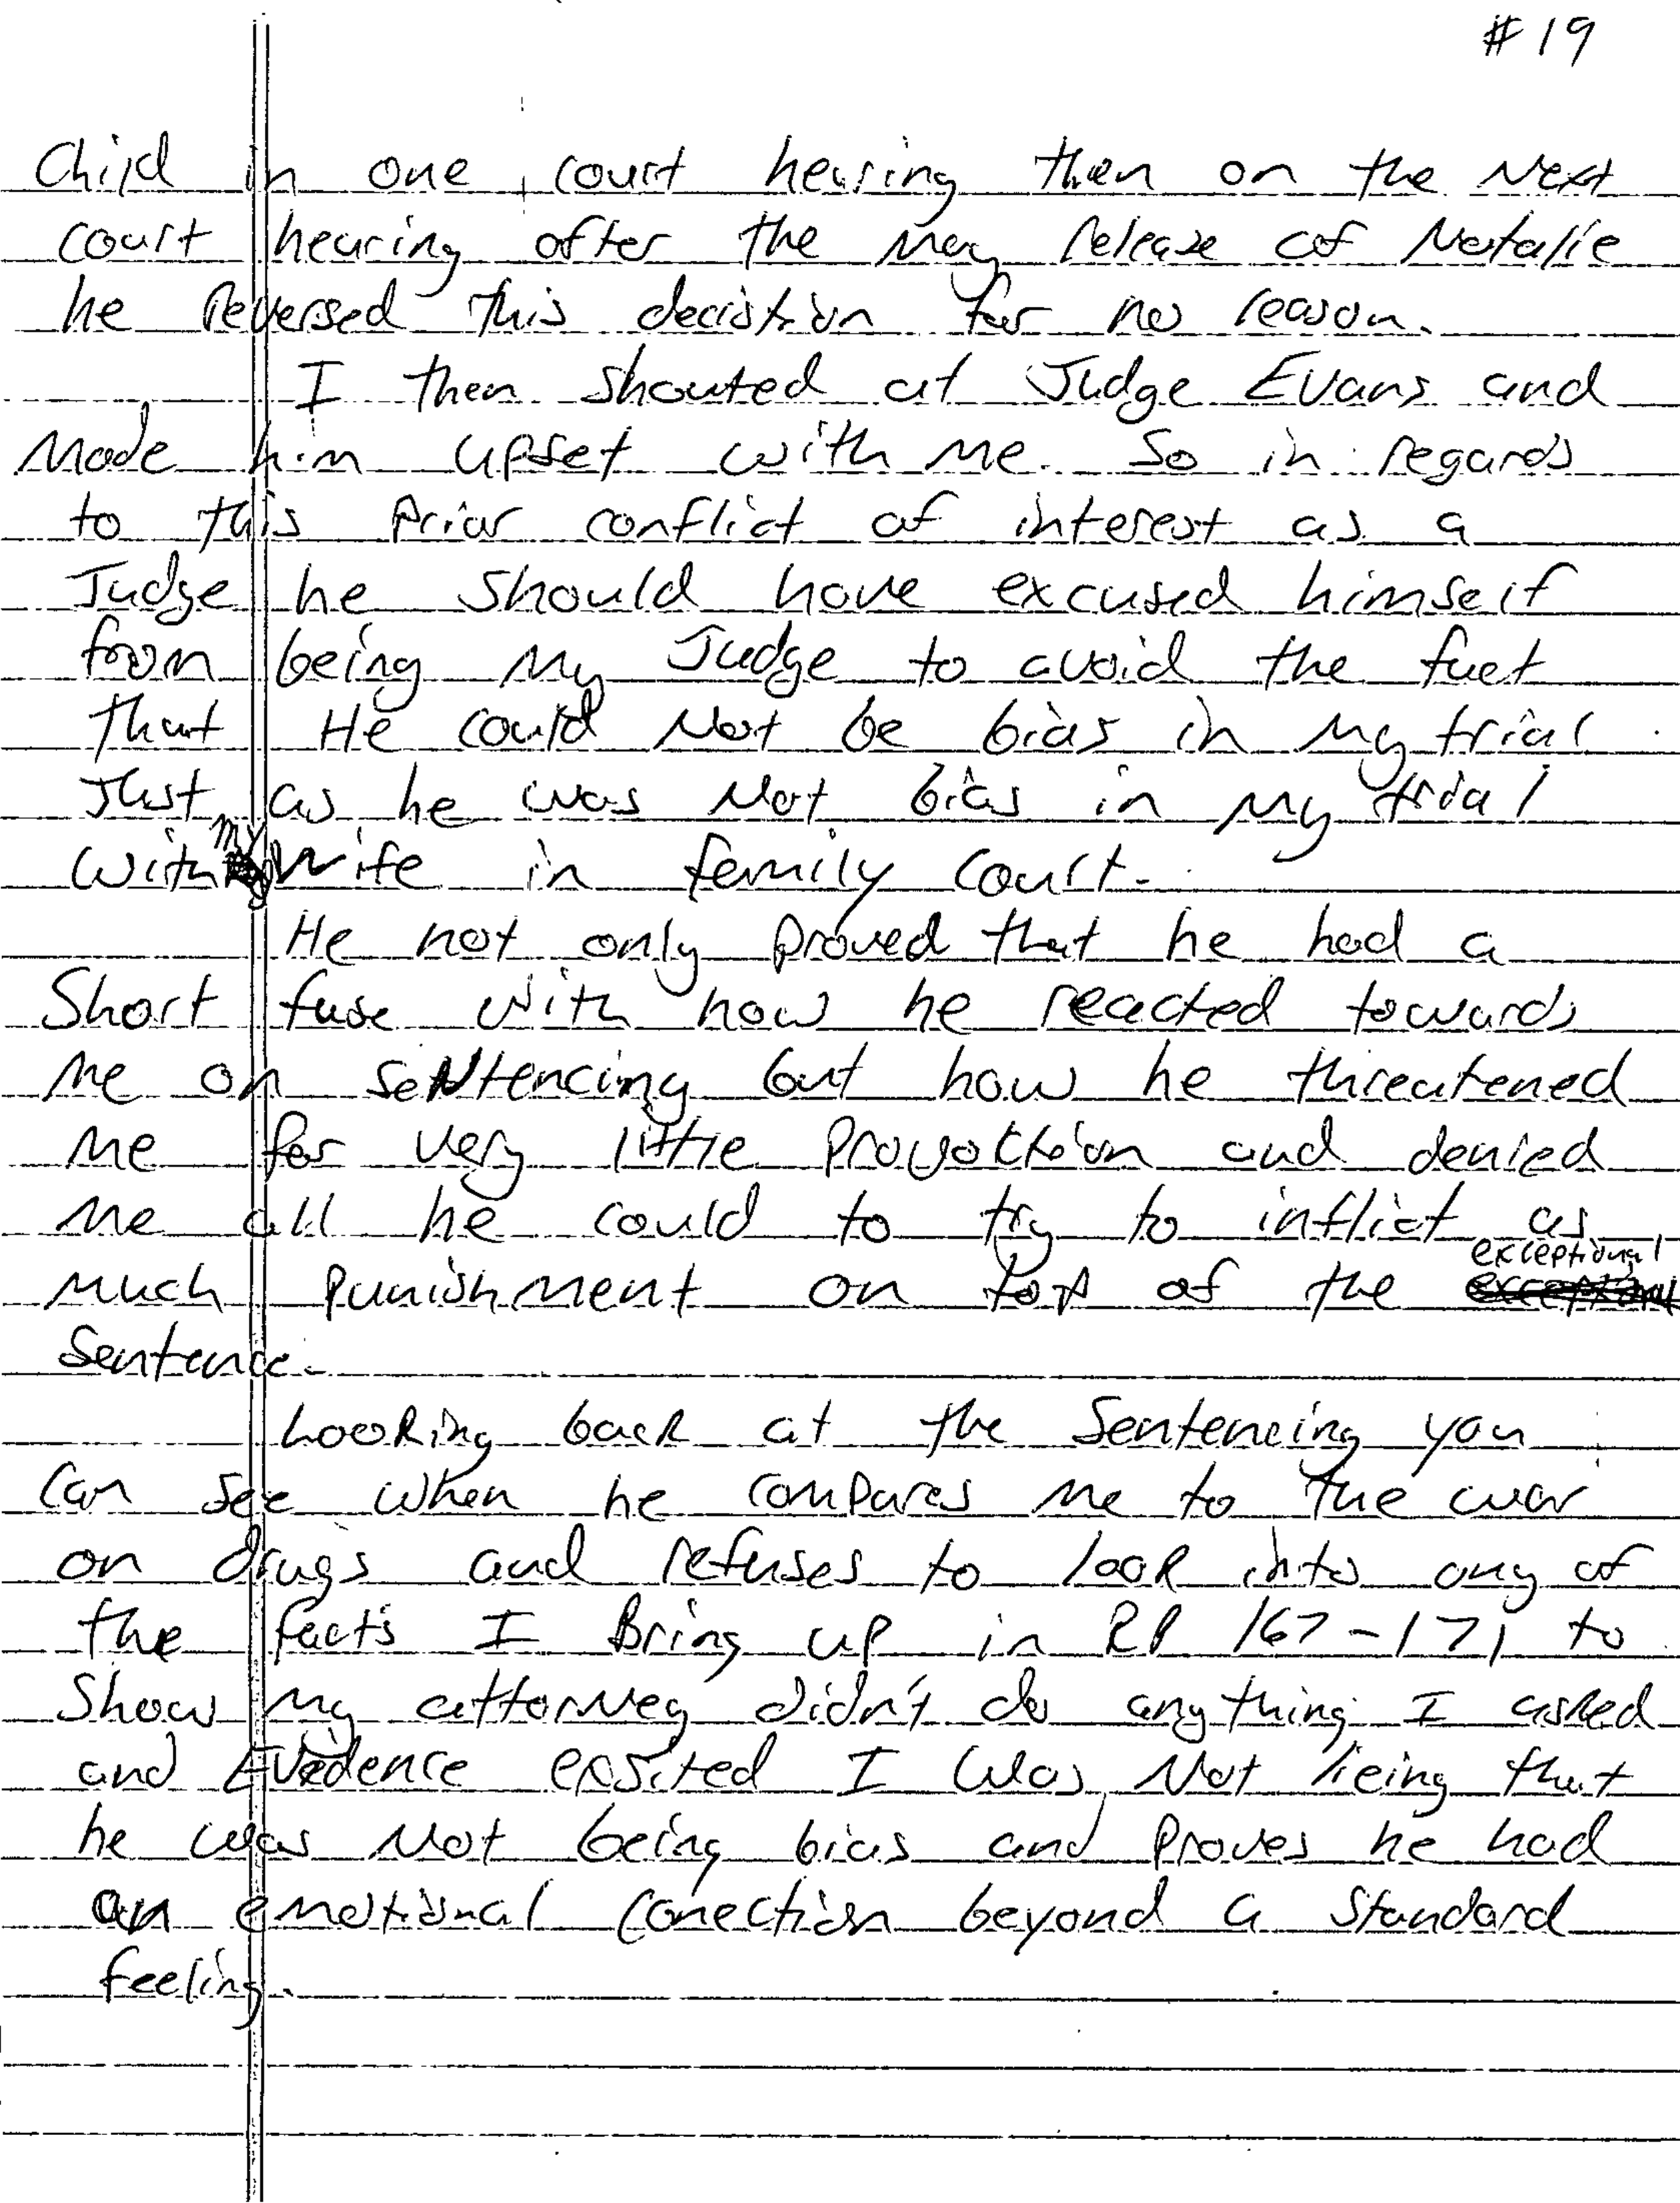 #19
Child in one court hearing then on the Next
court hearing after the May release of Natalie
he Reversed this decistion for no reason.
I then shouted at Judge Evans and
Made him upset with me. So in regards
to this Prior conflict of interest as a
Judge he should have excused himself
from being My Judge to avoid the fact
that He could Not be bias in My trial
Just as he was Not bias in My trial
with my wife in family court.
He not only proved that he had a
Short fuse with how he reacted towards
Me on SeNtencing but how he threatened
Me for very little Provoktion and denied
Me all he could to try to inflict as
Much Punishment on top of the exceptional
Sentence.
Looking back at the Sentencing you
Can see when he compares Me to the war
on drugs and refuses to look into any of
the facts I Bring up in RP 167-171 to
Show My attorney didn't do anything I asked
and Evidence exsited I Was Not lieing that
he was Not being bias and Proves he had
an emotional conection beyond a Standard
feeling.